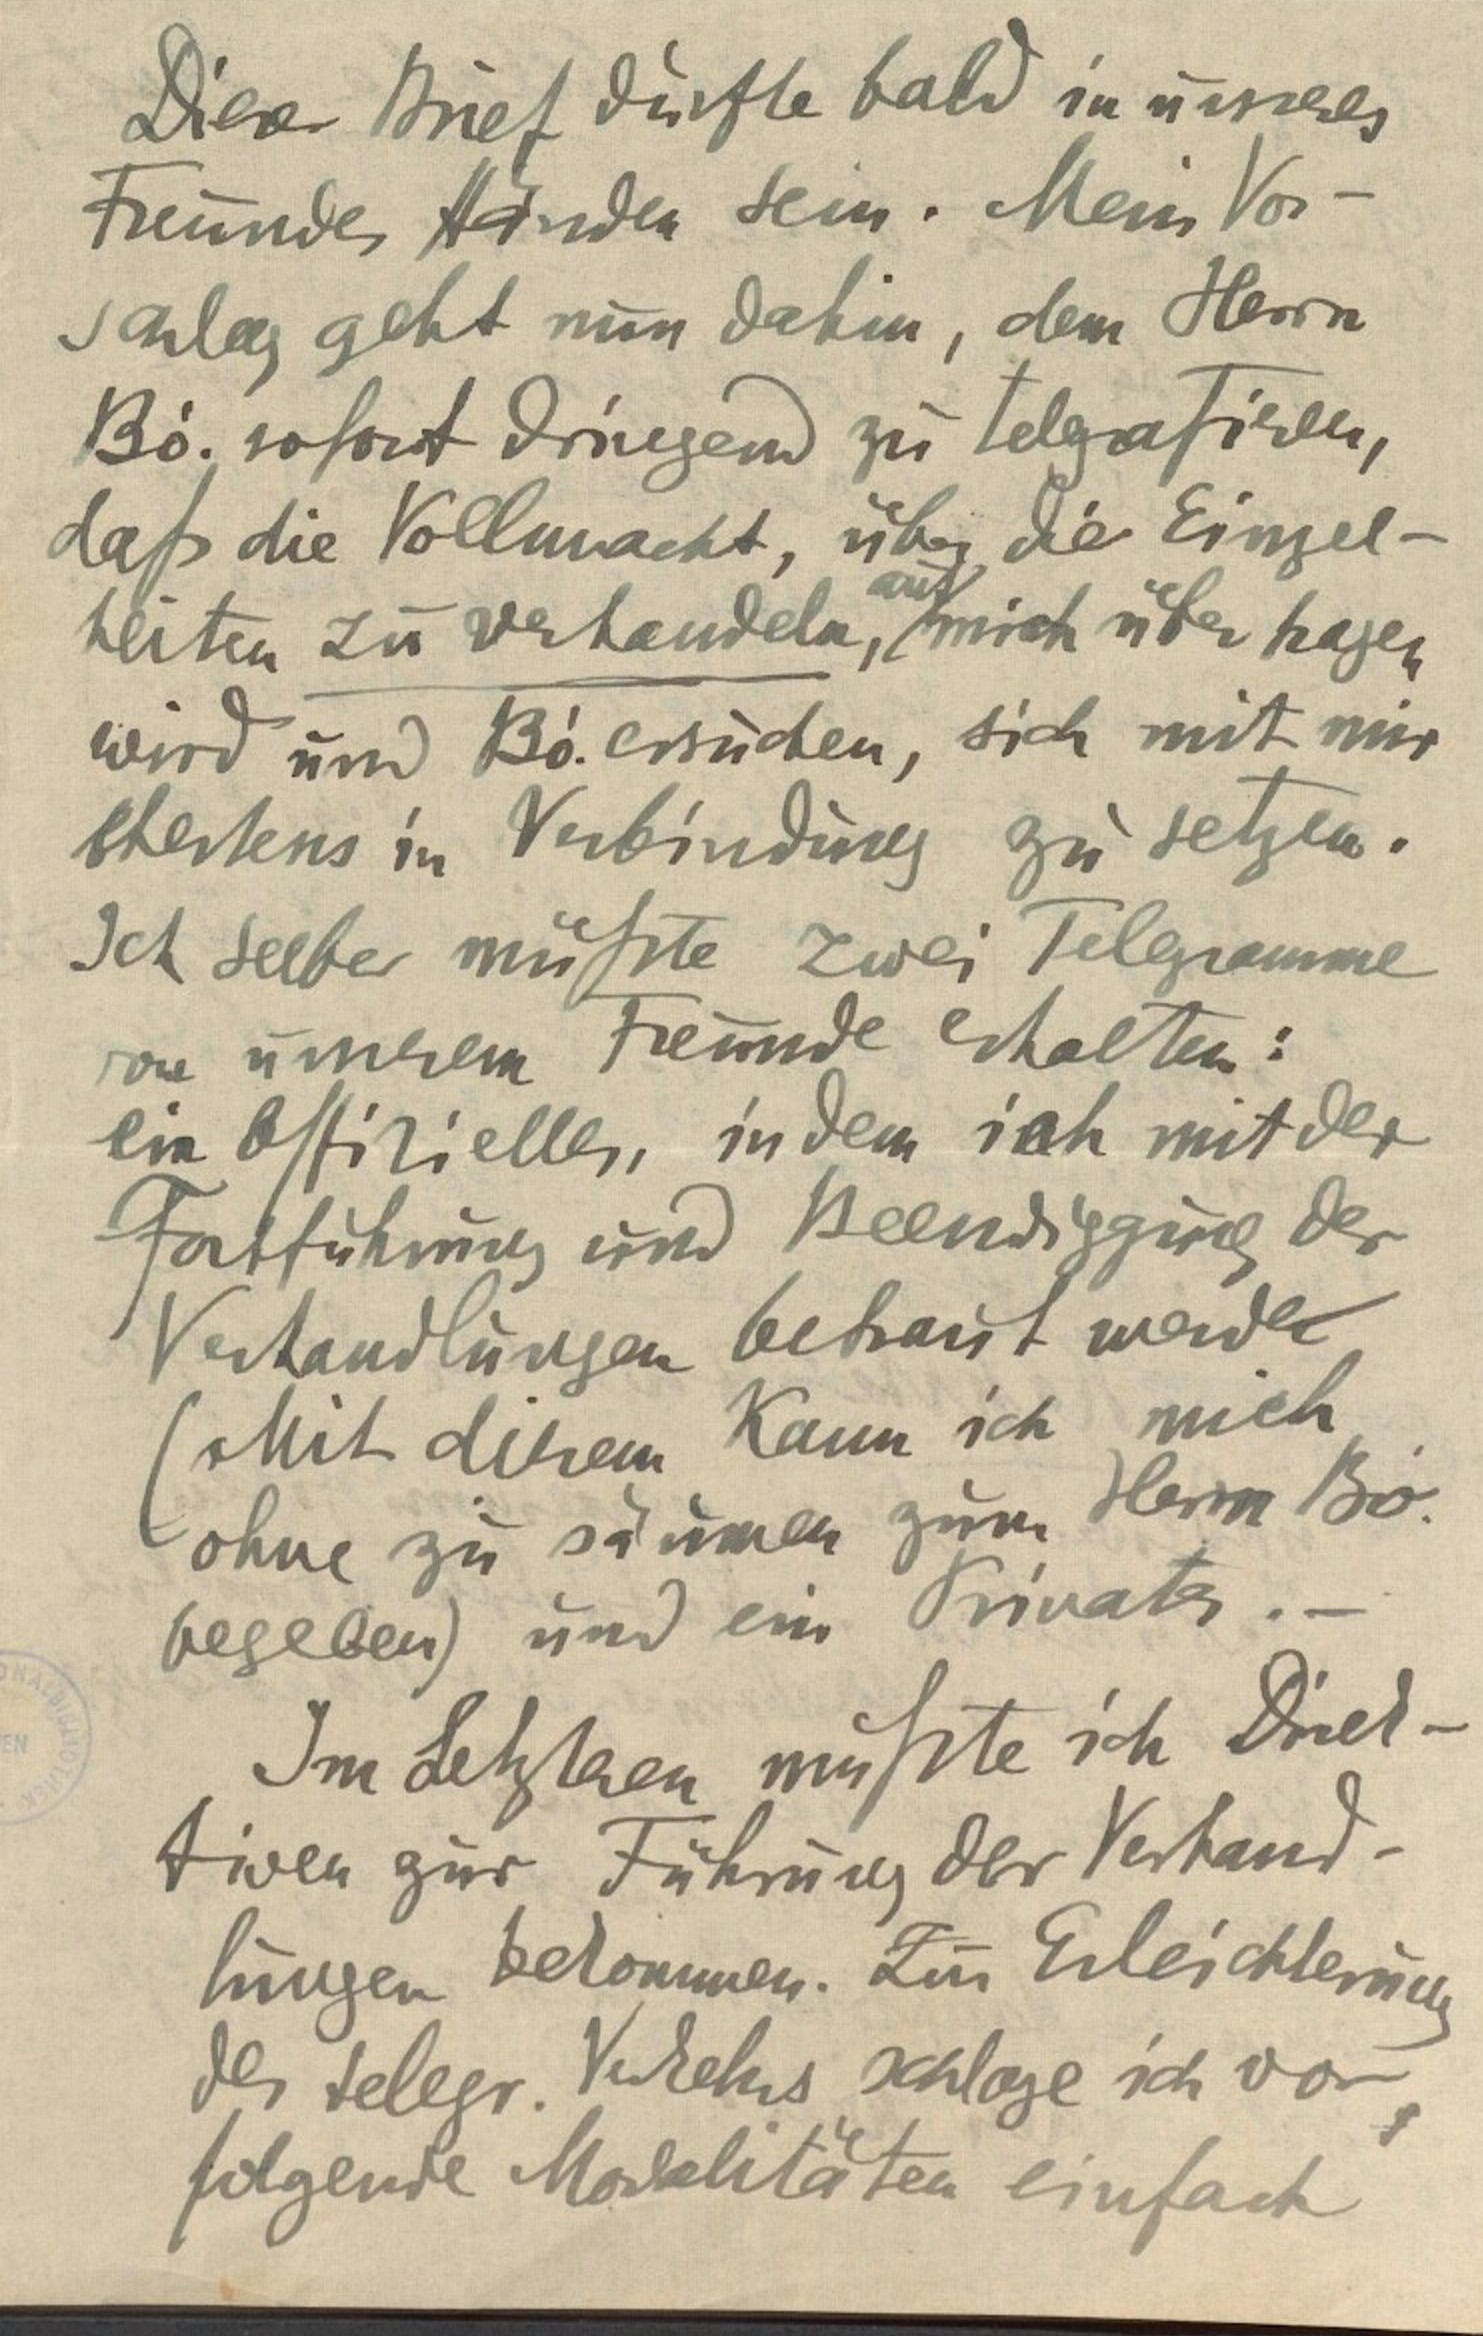 Dieser Brief dürfte bald in unseres
Freundes Händen sein. Mein Vor-
schlag geht nun dahin, dem Herrn
Bó. sofort dringend zu telegrafiren,
daß die Vollmacht, über die Einzel-
heiten zu verhandeln, auf mich übertragen
wird und Bó. ersuchen, sich mit mir
ehestens in Verbindung zu setzen.
Ich selber müßte zwei Telegramme
von unserem Freunde erhalten:
ein offizielles, indem ich mit der
Fortführung und Beendigung der
Verhandlungen betraut werde
(Mit diesem kann ich mich
ohne zu säumen zum Herrn Bó.
begeben) und ein Privates. –
Im Letzteren müßte ich Direk-
tiven zur Führung der Verhand-
lungen bekommen. Zur Erleichterung
des telegr. Verkehrs schlage ich vor,
folgende Modalitäten einfach